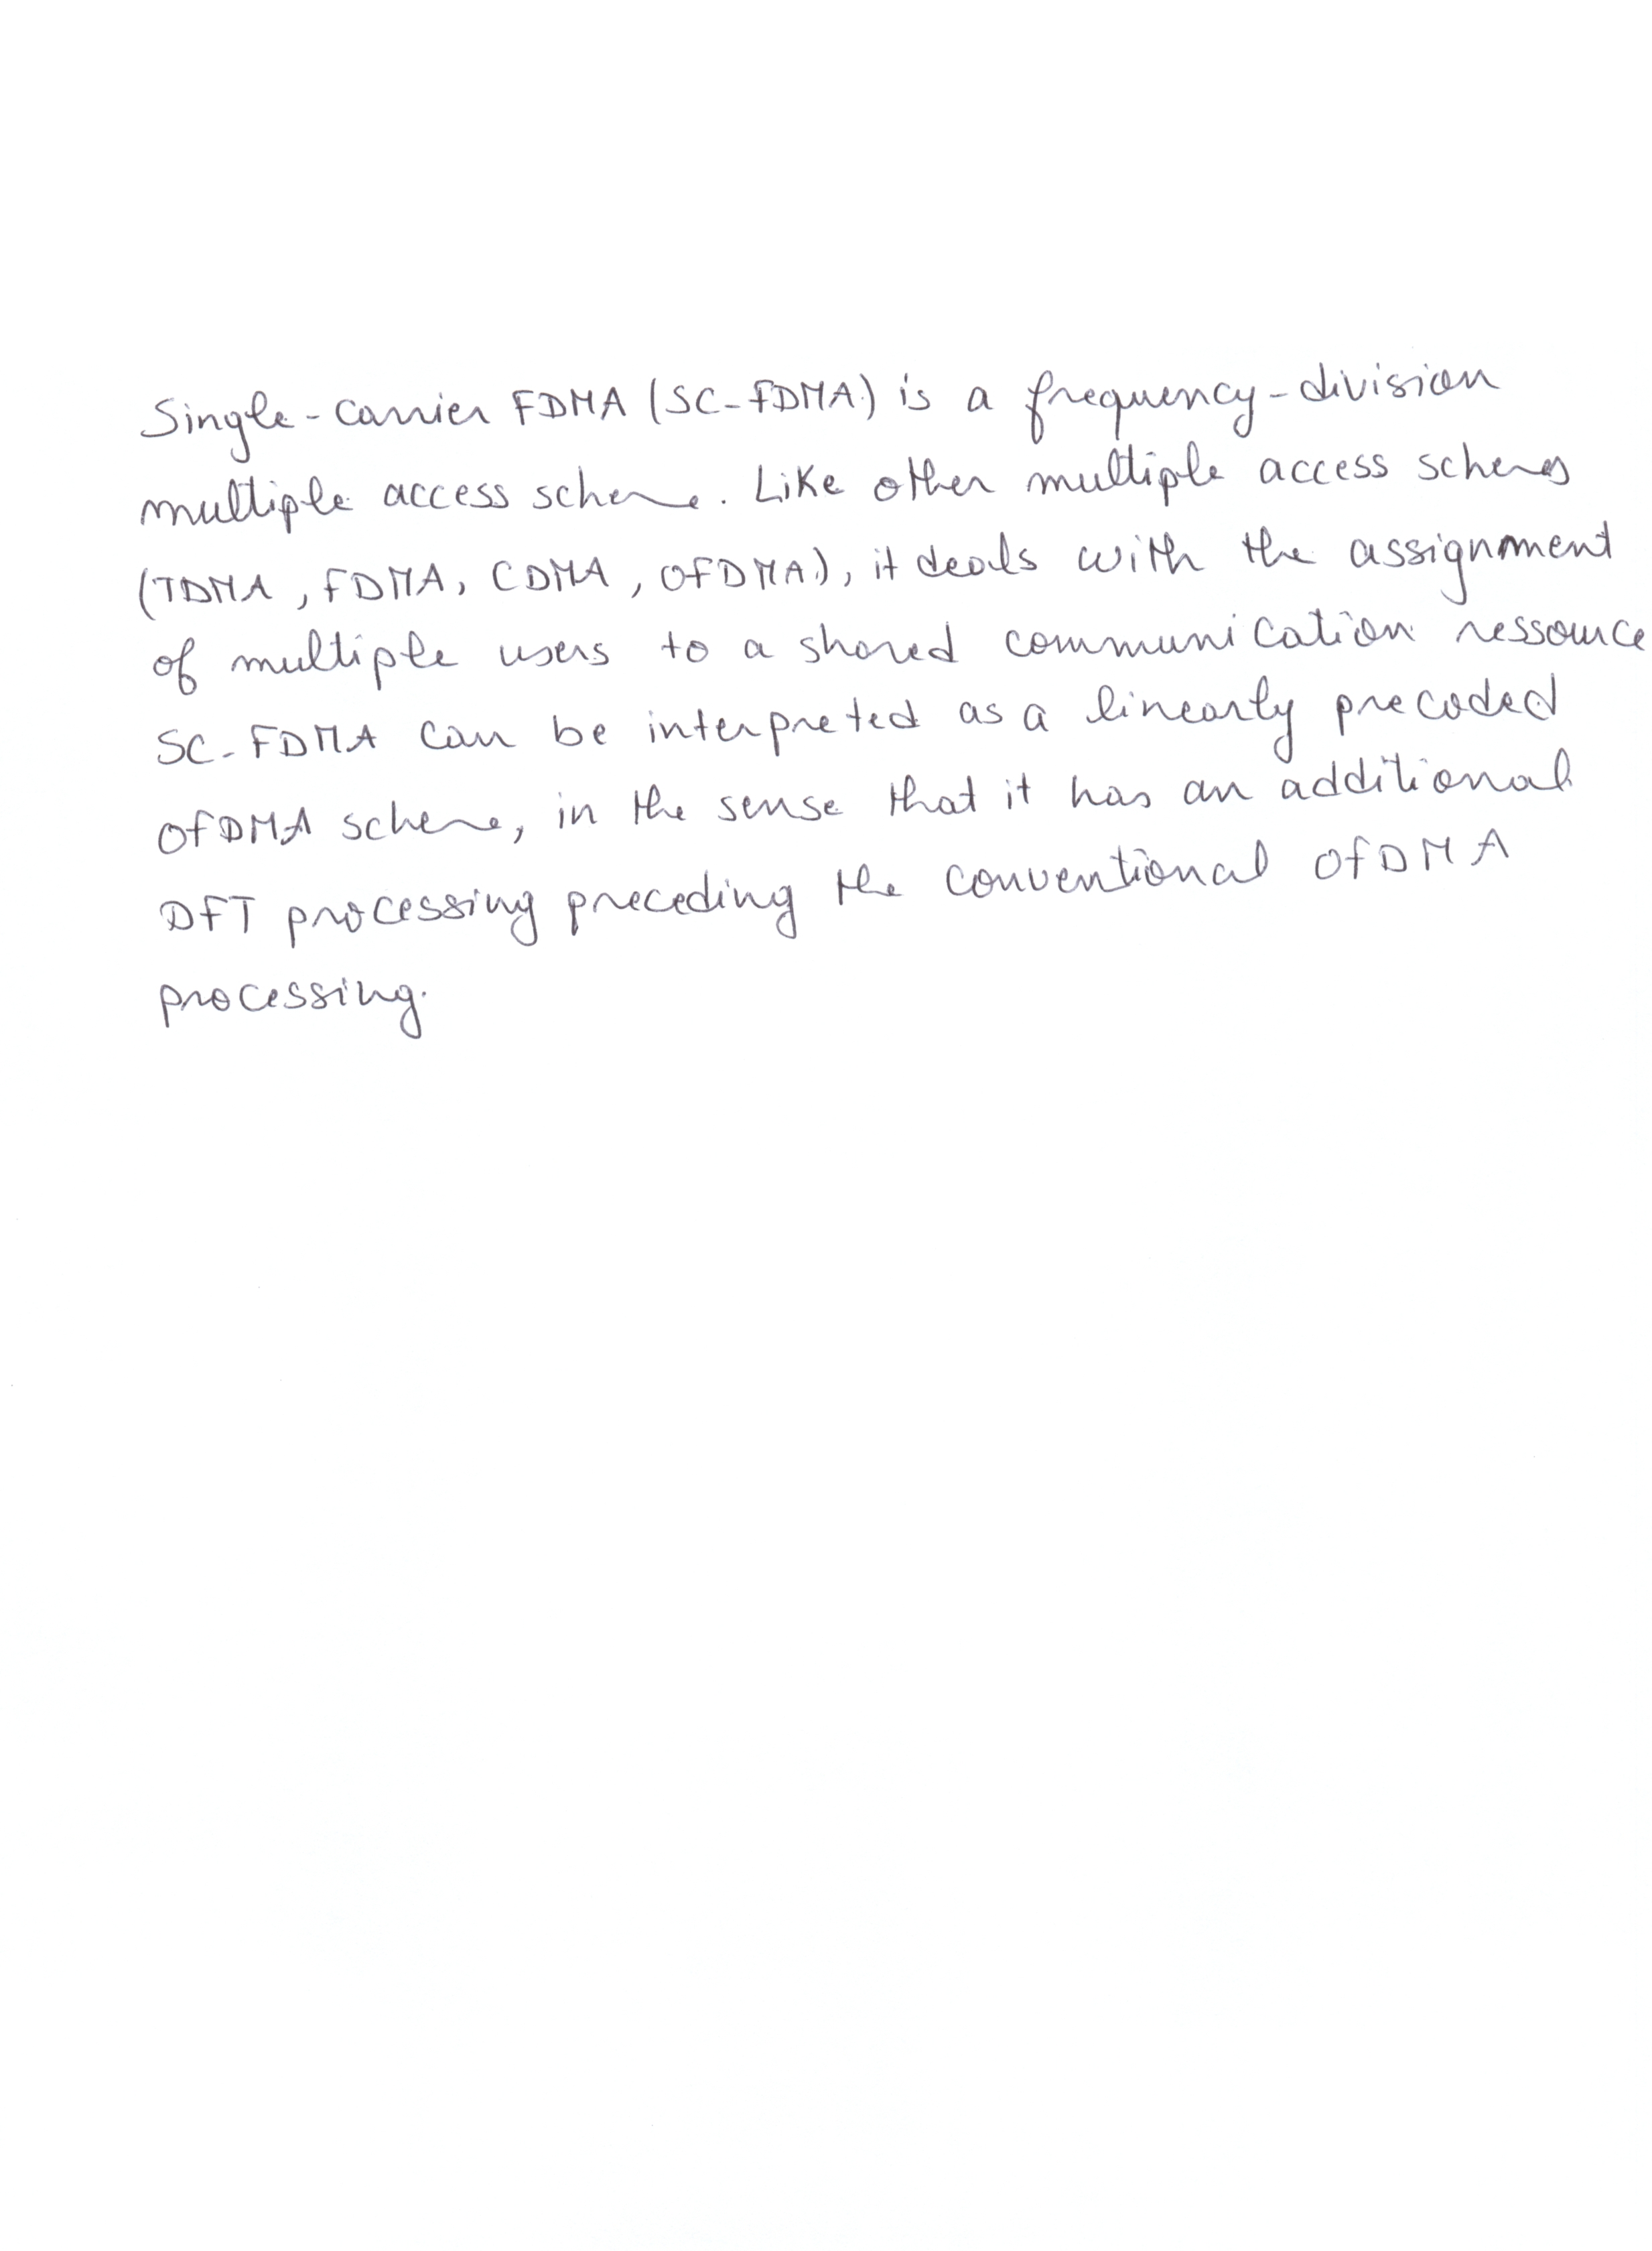 Single-carrier FDMA (SC-FDMA) is a frequency-division
multiple access scheme. Like other multiple access schemes
(TDMA, FDMA, CDMA, OFDMA), it deals with the assignment
of multiple users to a shared communication ressource
SC-FDMA can be interpreted as a linearly precoded
OFDMA scheme, in the sense that it has an additional
DFT processing preceding the conventional OFDMA
processing.